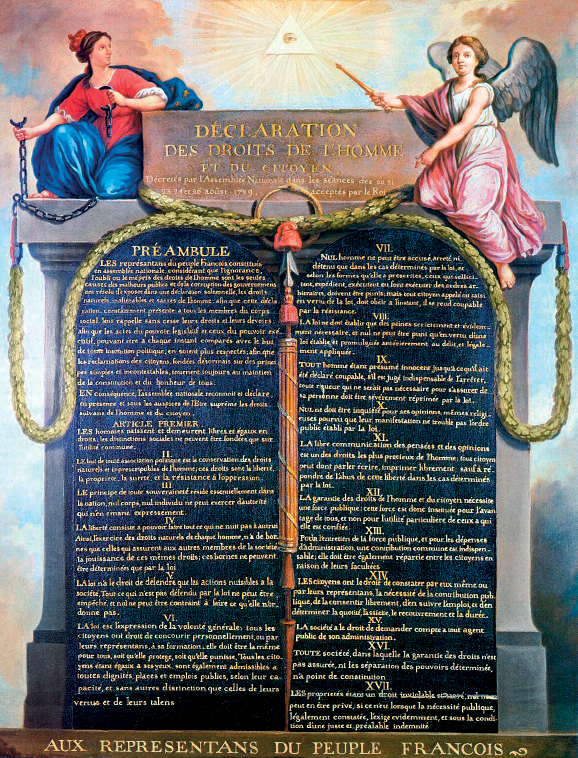 DÉCLARATION
DES DROITS DE L'HOMME
ET DU CITOYEN
Décretés par l'Assemblée Nationale dans les séances des 20, 21
23, 24 et 26 août 1789, acceptés par le Roi
PRÉAMBULE
LES représentans du peuple François constitués
en assemblée nationale, considérant que l'ignorance,
l'oubli ou le mépris des droits de l'homme sont les seules
causes des malheurs publics et de la corruption des gouvernemens
ont résolu d'exposer dans une déclaration solemnelle, les droits
naturels, inaliénables et sacrés de l'homme; afin que cette décla
ration, constamment présente à tous les membres du corps
social, leur rappelle sans cesse leurs droits et leurs devoirs;
afin que les actes du pouvoir législatif et ceux du pouvoir exé
cutif, pouvant être à chaque instant comparés avec le but
de toute institution politique, en soient plus respectés; afin que
les réclamations des citoyens, fondées désormais sur des principes
simples et incontestables, tournent toujours au maintien
de la constitution et du bonheur de tous.
EN conséquence, l'assemblée nationale reconnoit et déclare
en présence et sous les auspices de l'Etre suprême les droits
suivans de l'homme et du citoyen.
ARTICLE PREMIER
LES hommes naissent et demeurent libres et égaux en
droits; les distinctions sociales ne peuvent être fondées que sur
l'utilité commune.
II.
LE but de toute association politique est la conservation des droits
naturels et imprescriptibles de l'homme; ces droits sont la liberté,
la propriété, la sureté, et la résistance à l'oppression.
III.
LE principe de toute souveraineté réside essentiellement dans
la nation, nul corps, nul individu ne peut exercer d'autorité
qui n'en émane expressement.
IV.
LA liberté consiste à pouvoir faire tout ce qui ne nuit pas à autrui
Ainsi, l'exercice des droits naturels de chaque homme, n'a de bor
nes que celles qui assurent aux autres membres de la société
la jouissance de ces mêmes droits; ces bornes ne peuvent
être déterminées que par la loi.
V.
LA loi n'a le droit de défendre que les actions nuisibles à la
société. Tout ce qui n'est pas défendu par la loi ne peut être
empêché, et nul ne peut être contraint à faire ce qu'elle n'or
donne pas.
VI.
LA loi est l'expression de la volonté générale; tous les
citoyens ont droit de concourir personnellement, ou par
leurs représentans, à sa formation; elle doit être la même
pour tous, soit qu'elle protege, soit qu'elle punisse. Tous les cito
yens étant égaux à ses yeux, sont également admissibles à
toutes dignités, places et emplois publics, selon leur ca
pacité, et sans autres distinction que celles de leurs
vertus et de leurs talens
VII.
NUL homme ne peut être accusé, arreté, ni
détenu que dans les cas déterminés par la loi, et
selon les formes qu'elle a prescrites, ceux qui sollici
tent, expédient, exécutent ou font exécuter des ordres ar
bitraires, doivent être punis; mais tout citoyen appelé ou saisi
en vertu de la loi, doit obéir à l'instant, il se rend coupable
par la résistance.
VIII.
LA loi ne doit établir que des peines strictement et évidem
ment nécessaire, et nul ne peut être puni qu'en vertu d'une
loi établie, et promulguée antérierement au délit, et légale
ment appliquée.
IX.
TOUT homme étant présumé innocent jusqu'à ce qu'il ait
été déclaré coupable, s'il est jugé indispensable de l'arrêter,
toute rigueur qui ne serait pas nécessaire pour s'assurer de
sa personne doit être sévèrement réprimée par la loi.
X.
NUL ne doit être inquiété pour ses opinions, mêmes religi
euses pourvu que leur manifestation ne trouble pas l'ordre
public établi par la loi.
XI.
LA libre communication des pensées et des opinions
est un des droits les plus precieux de l'homme; tout citoyen
peut donc parler écrire, imprimer librement: sauf à ré
pondre de l'abus de cette liberté dans les cas déterminés
par la loi.
XII.
LA garantie des droits de l'homme et du citoyen nécessite
une force publique; cette force est donc instituée pour l'avan
tage de tous, et non pour l'utilité particulière de ceux a qui
elle est confiée.
XIII.
POUR l'entretien de la force publique, et pour les dépenses
d'administration, une contribution commune est indispen
sable; elle doit être également répartie entre les citoyens en
raison de leurs facultées
XIV.
LES citoyens ont le droit de constater par eux même ou
par leurs représentans, la nécessité de la contribution pub
lique, de la consentir librement, d'en suivre l'emploi, et d'en
déterminer la quotité, l'assiette, le recouvrement et la durée.
XV.
LA société a le droit de demander compte a tout agent
public de son administration.
XVI.
TOUTE société, dans laquelle la garantie des droits n'est
pas assurée, ni les séparation des pouvoirs déterminée,
n'a point de constitution
XVII.
LES propriétés étant un droit inviolable et sacré, nul ne
peut en être privé, si ce n'est lorsque la nécessité publique,
légalement constatée, l'exige evidemment, et sous la condi
tion d'une juste et préalable indemnité
AUX REPRESENTANS DU PEUPLE FRANCOIS